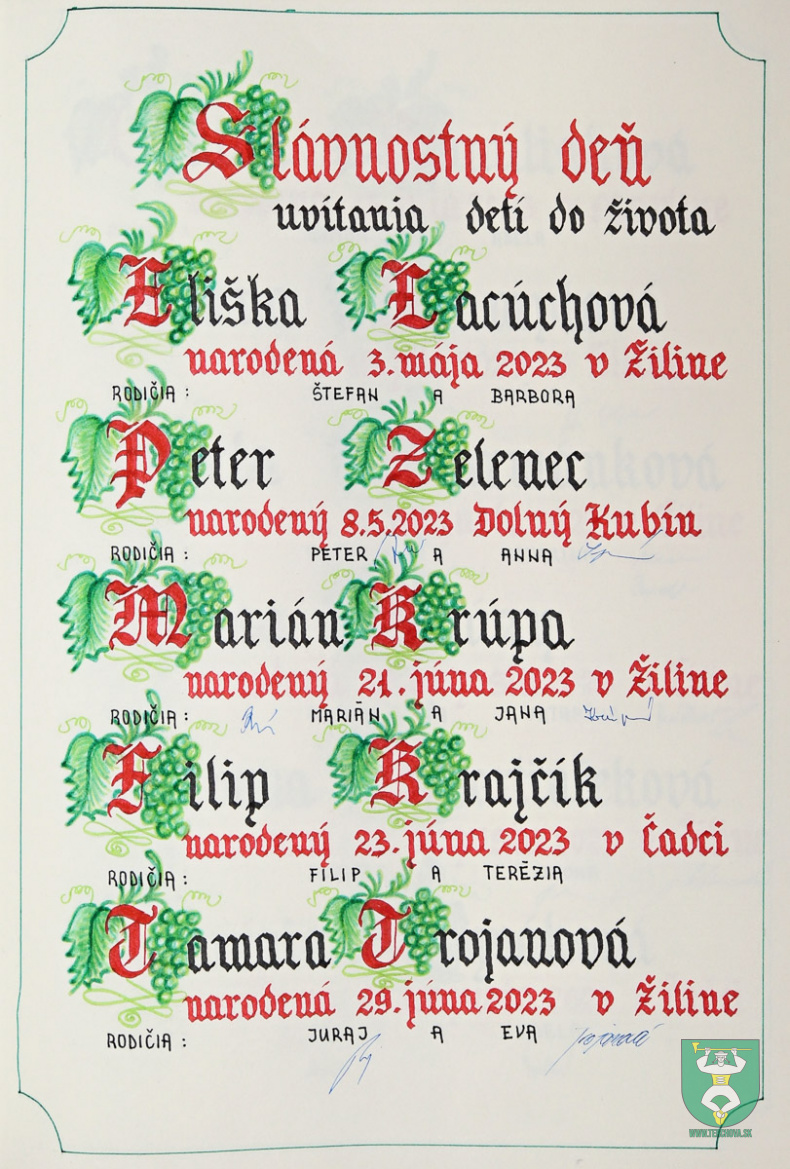 Slávnostný deň
uvítania detí do života
Eliška Lacúchová
narodená 3. mája 2023 v Žiline
RODIČIA : ŠTEFAN A BARBORA
Peter Zelenec
narodený 8.5.2023 Dolný Kubín
RODIČIA : PETER A ANNA
Marián Krúpa
narodený 21. júna 2023 v Žiline
RODIČIA : MARIÁN A JANA
Filip Krajčík
narodený 23. júna 2023 v Čadci
RODIČIA : FILIP A TERÉZIA
Tamara Trojanová
narodená 29. júna 2023 v Žiline
RODIČIA : JURAJ A EVA
WWW.TERCHOVA.SK